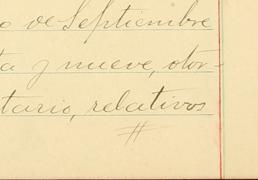 o de Septiembre
ta y nueve, otor-
tario, relativos